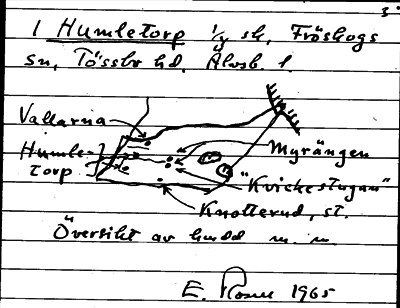 3
1 Humletorp 1/4 sk, Fröskogs
sn, Tössbo hd. Älvsb. l.
Vallarna
Humle-
torp
Myrängen
"Kvickestugan"
Knotterud, st.
Översikt av hmdd m. m.
E. Rosen 1965